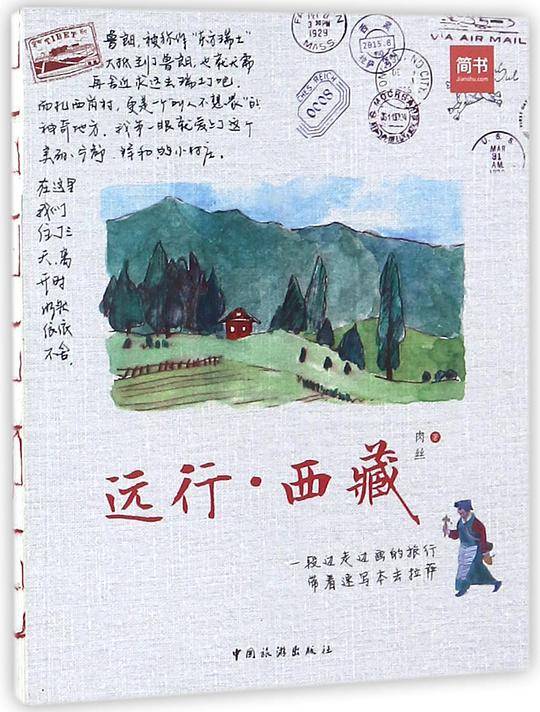 TIBET
鲁朗，被称作“东方瑞士”
大概到了鲁朗，也就无需
再舍近求远去瑞士了吧.
而扎西岗村，更是一个“叫人不想家”的
神奇地方. 我第一眼就爱上了这个
美丽、宁静、祥和的小村庄.
在这里
我们
住了三
天，离
开时
依依
不舍.
1929
MASS
2015.8
VIA AIR MAIL
简书
Jianshu.com
8000
МОСКВА
U. S. S.
MAR
31
AM
肉丝 著
远行·西藏
一段边走边画的旅行
带着速写本去拉萨
中国旅游出版社